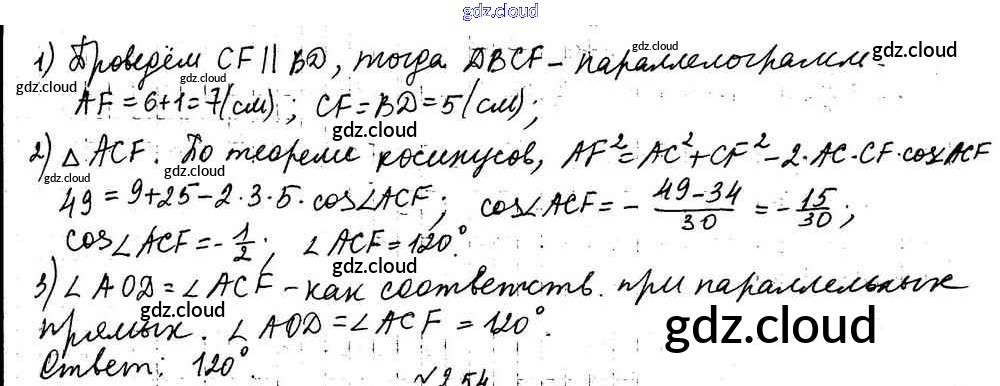 gdz.cloud
gdz.cloud
1) Проведём CF || BD, тогда DBCF – параллелограмм.
gdz.cloud gdz.cloud gdz.cloud gdz.cloud gdz.cloud
AF = 6+1 = 7 (см); CF = BD = 5 (см);
gdz.cloud
gdz.cloud gdz.cloud
2) △ ACF. По теореме косинусов, AF² = AC² + CF² – 2·AC·CF·cos ACF
gdz.cloud
49 = 9+25 – 2·3·5·cos∠ACF; cos∠ACF = – (49–34)/30 = – 15/30;
gdz.cloud
cos∠ACF = – 1/2; ∠ACF = 120°.
gdz.cloud
3) ∠AOD = ∠ACF – как соответств. при параллельных
прямых. ∠AOD = ∠ACF = 120°.
gdz.cloud gdz.cloud
Ответ: 120°.
gdz.cloud
№254